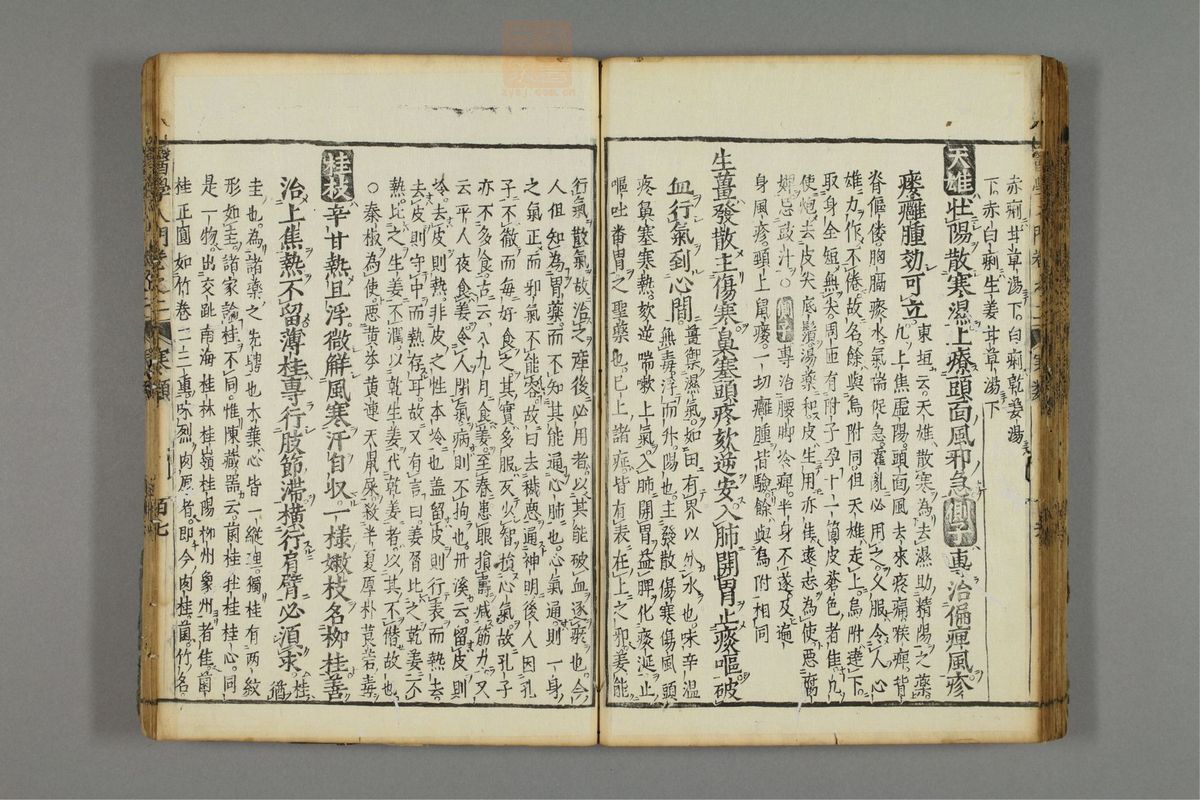 赤痢甘草湯下白痢乾姜湯
下赤白痢生姜甘草湯下
天雄壮陽散寒濕上療頭面風邪急側子專治偏痺風疹
瘘癰腫効可立東垣云天雄散寒為去濕助精陽之藥
脊傴僂胸膈痰水氣喘促急霍亂必用之久服令人心
雄力作不倦故名餘與烏附同但天雄走上烏附達下
取身全短無尖周匝有附子孕十一箇皮蒼色者佳凡
使炮去皮尖底鬚湯藥和皮生用亦佳遠志為使惡腐
婢忌豉汁○側子專治腰脚冷痺半身不遂及遍
身風疹頸上鼠瘘一切癰腫皆驗餘與烏附相同
生薑發散主傷寒鼻塞頭疼欬逆安入肺開胃止痰嘔破
血行氣到心間薑禦濕氣如田有界以分水也味辛温
無毒浮而升陽也主發散傷寒傷風頭
疼鼻塞寒熱欬逆喘嗽上氣入肺開胃益脾化痰涎止
嘔吐番胃之聖藥也已上諸症皆有表在上之邪姜能
行氣散氣故治之産後必用者以其能破血逐瘀也今
人但知為胃藥而不知其能通心肺也心氣通則一身
之氣正而邪氣不能容故曰去穢惡通神明後人因孔
子不徹而每好食之其實多服灭火智損心氣故孔子
亦不多食古云八九月食姜至春患眼損壽減筋力又
云平人夜食姜令人閉氣病則不拘也丹溪云留皮則
冷去皮則熱非皮之性本冷也盖留皮則行表而熱去
去皮則守中而熱存耳故又有言曰姜屑比之乾姜不
熱比之生姜不潤以乾生姜代乾姜者以其不僭故也
○秦椒為使惡黄芩黄連天鼠屎殺半夏厚朴莨菪毒
桂枝辛甘熱且浮微解風寒汗自収一様嫩枝名柳桂善
治上焦熱不留薄桂專行肢節滯横行肩臂必須求桂猶
圭也為諸藥之先聘也木葉心皆一縦理獨桂有两紋
形如圭諸家論桂不同惟陳藏器云菌桂牡桂桂心同
是一物出交趾南海桂林桂嶺桂陽柳州象州者佳菌
桂正圓如竹卷二三重味烈肉厚者即今肉桂菌竹名